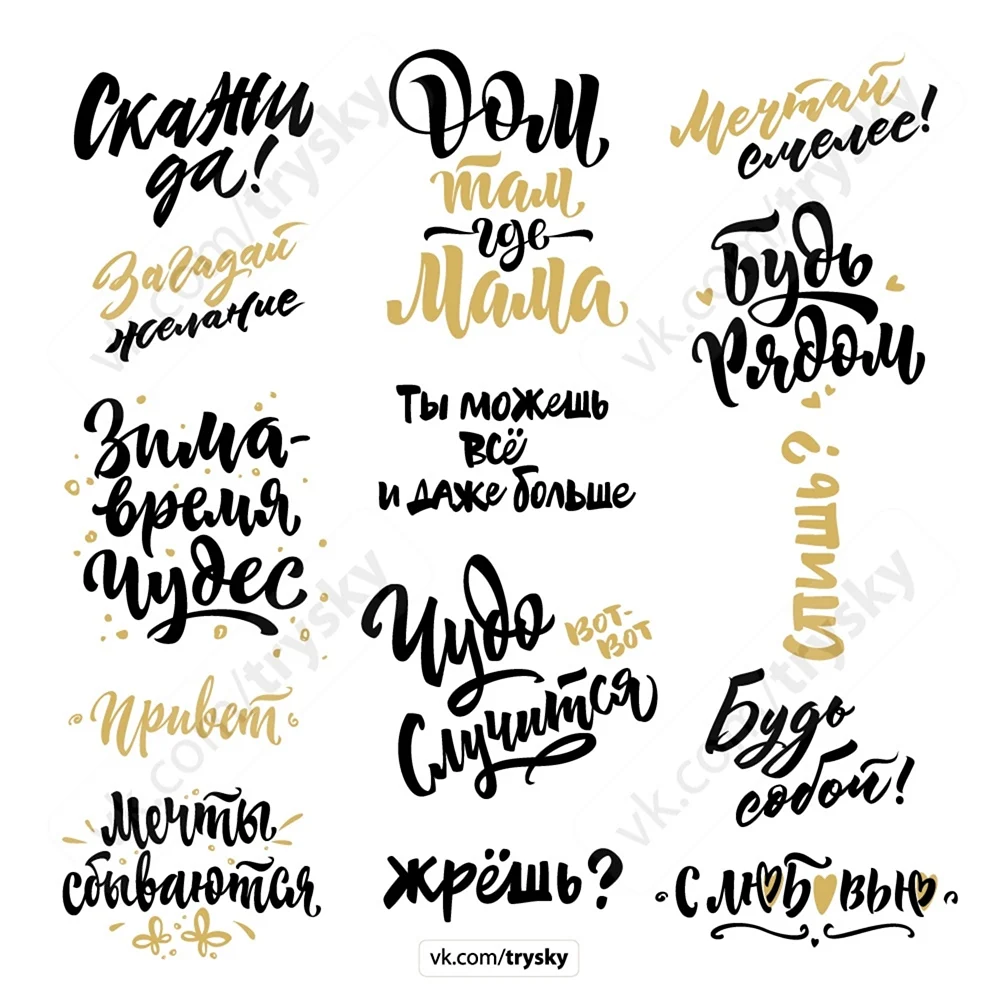 Скажи
да!
Загадай
желание
Зима-
время
чудес
Привет
Мечты
сбываются
Дом
там
где
Мама
Ты можешь
всё
и даже больше
Чудо
вот-
вот
Случится
жрёшь?
Мечтай
смелее!
Будь
рядом
Спишь?
Будь
собой!
С любовью
vk.com/trysky
vk.com/trysky
vk.com/trysky
vk.com/trysky
vk.com/trysky